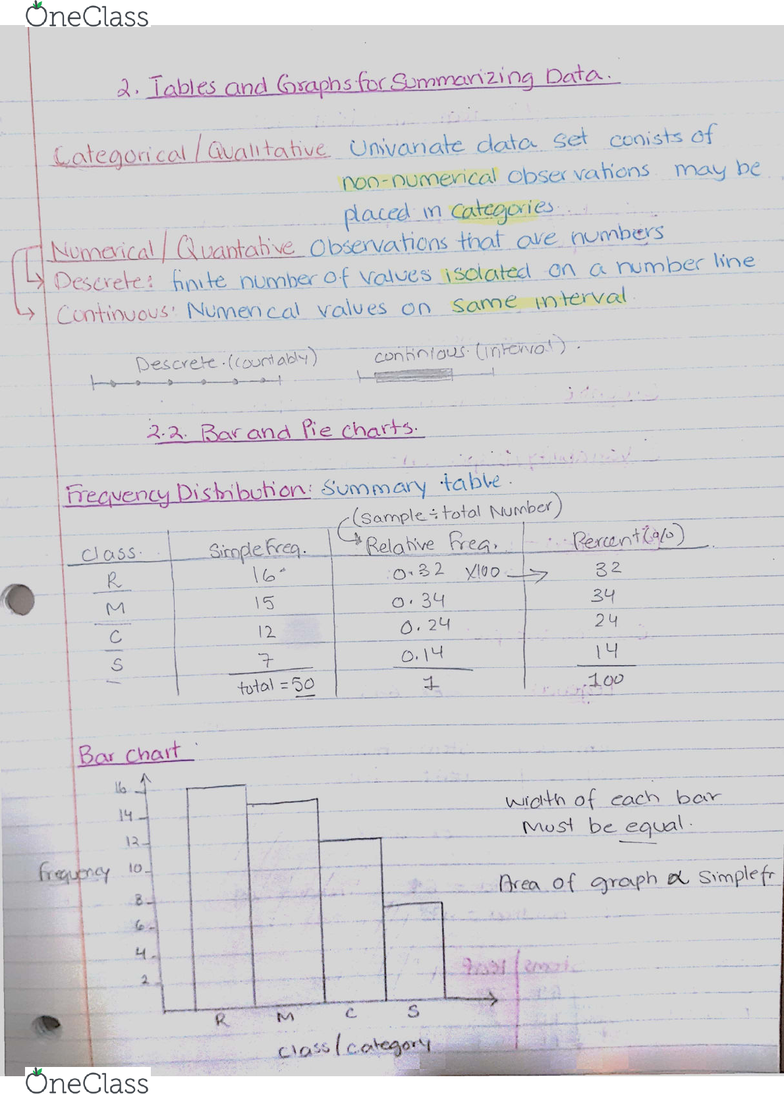 OneClass
2. Tables and Graphs for Summarizing Data.
Categorical / Qualitative Univariate data set conists of
non-numerical observations may be
placed in categories.
Numerical / Quantative Observations that are numbers
Descrete: finite number of values isolated on a number line
Continuous: Numerical values on same interval.
Descrete. (countably) continious. (interval).
2.2. Bar and Pie charts.
Frequency Distribution: Summary table.
(Sample ÷ total Number)
class. Simple Freq. Relative Freq. Percent (%)
R 16 0.32 x100 → 32
M 15 0.34 34
C 12 0.24 24
S 7 0.14 14
total = 50 1 100
Bar chart
16
14
12
Frequency 10
8
6
4
2
R M C S
class / category
width of each bar
Must be equal.
Area of graph α simple fr
OneClass